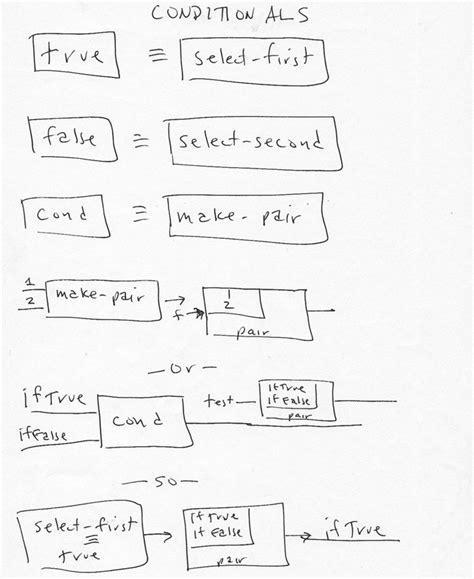 CONDITIONALS
true ≡ select-first
false ≡ select-second
cond ≡ make-pair
1
2 make-pair → f → 1
2
pair
—or—
ifTrue
ifFalse cond test ifTrue
ifFalse
pair
—so—
select-first
≡
true → ifTrue
ifFalse
pair → ifTrue